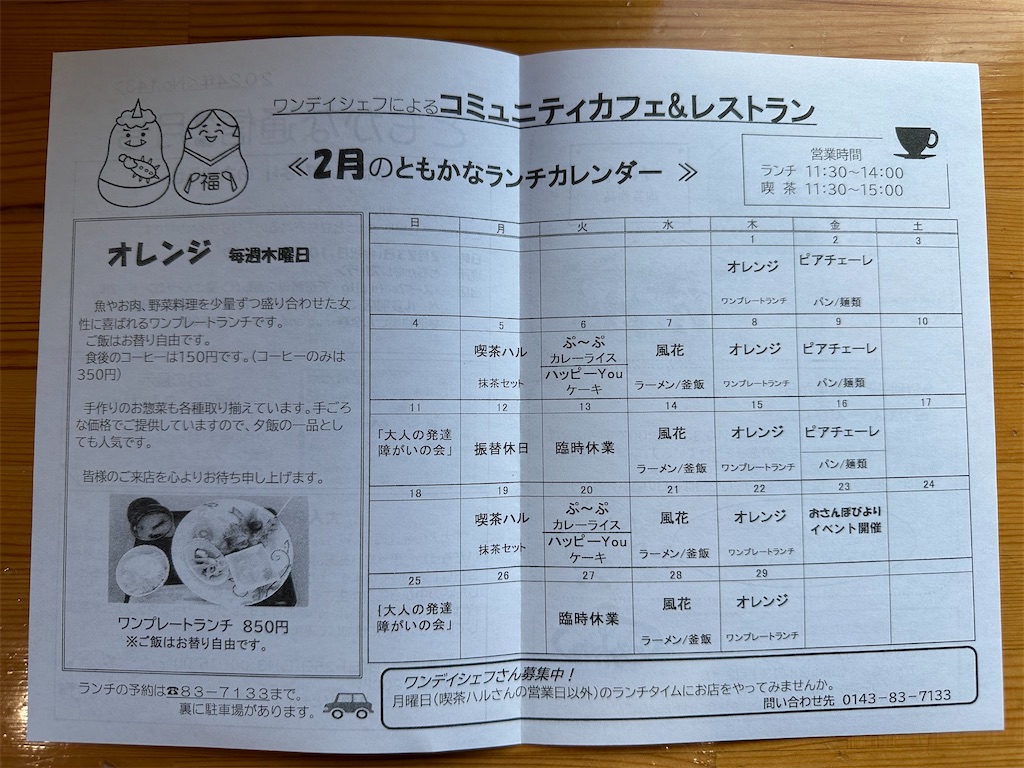 ワンデイシェフによるコミュニティカフェ&レストラン
≪2月のともかなランチカレンダー ≫
営業時間
ランチ 11:30～14:00
喫 茶 11:30～15:00
福
オレンジ 毎週木曜日
魚やお肉、野菜料理を少量ずつ盛り合わせた女
性に喜ばれるワンプレートランチです。
ご飯はお替り自由です。
食後のコーヒーは150円です。(コーヒーのみは
350円)
手作りのお惣菜も各種取り揃えています。手ごろ
な価格でご提供していますので、夕飯の一品とし
ても人気です。
皆様のご来店を心よりお待ち申し上げます。
ワンプレートランチ 850円
※ご飯はお替り自由です。
ランチの予約は☎83－7133まで。
裏に駐車場があります。
日 月 火 水 木 金 土
1 2 3
オレンジ ピアチェーレ
ワンプレートランチ パン/麺類
4 5 6 7 8 9 10
喫茶ハル ぷ～ぷ 風花 オレンジ ピアチェーレ
カレーライス
ハッピーYou
抹茶セット ケーキ ラーメン/釜飯 ワンプレートランチ パン/麺類
11 12 13 14 15 16 17
「大人の発達 振替休日 臨時休業 風花 オレンジ ピアチェーレ
障がいの会」
ラーメン/釜飯 ワンプレートランチ パン/麺類
18 19 20 21 22 23 24
喫茶ハル ぷ～ぷ 風花 オレンジ おさんぽびより
カレーライス イベント開催
ハッピーYou
抹茶セット ケーキ ラーメン/釜飯 ワンプレートランチ
25 26 27 28 29
「大人の発達 臨時休業 風花 オレンジ
障がいの会」
ラーメン/釜飯 ワンプレートランチ
ワンデイシェフさん募集中！
月曜日(喫茶ハルさんの営業日以外)のランチタイムにお店をやってみませんか。
問い合わせ先 0143－83－7133